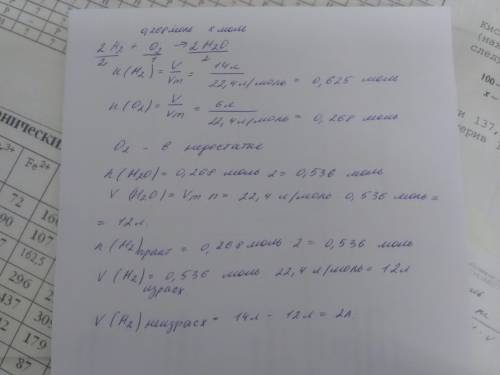 0,268 моль х моль
2H₂ + O₂ → 2H₂O
2 1 2
n(H₂) = V/Vm = 14л/22,4л/моль = 0,625 моль
n(O₂) = V/Vm = 6л/22,4л/моль = 0,268 моль
O₂ - в недостатке
n(H₂O) = 0,268 моль 2 = 0,536 моль
V(H₂O) = Vm n = 22,4 л/моль 0,536 моль =
= 12л.
n(H₂) = 0,268 моль 2 = 0,536 моль
V(H₂) израсх = 0,536 моль 22,4 л/моль = 12л
V(H₂) неизрасх = 14л - 12л = 2л
Кис
(на
следу
100
x
и 137.
ерив
ническі
3+ Fe²⁺
72 16
90 107
1625
296
437 30
12 179
87